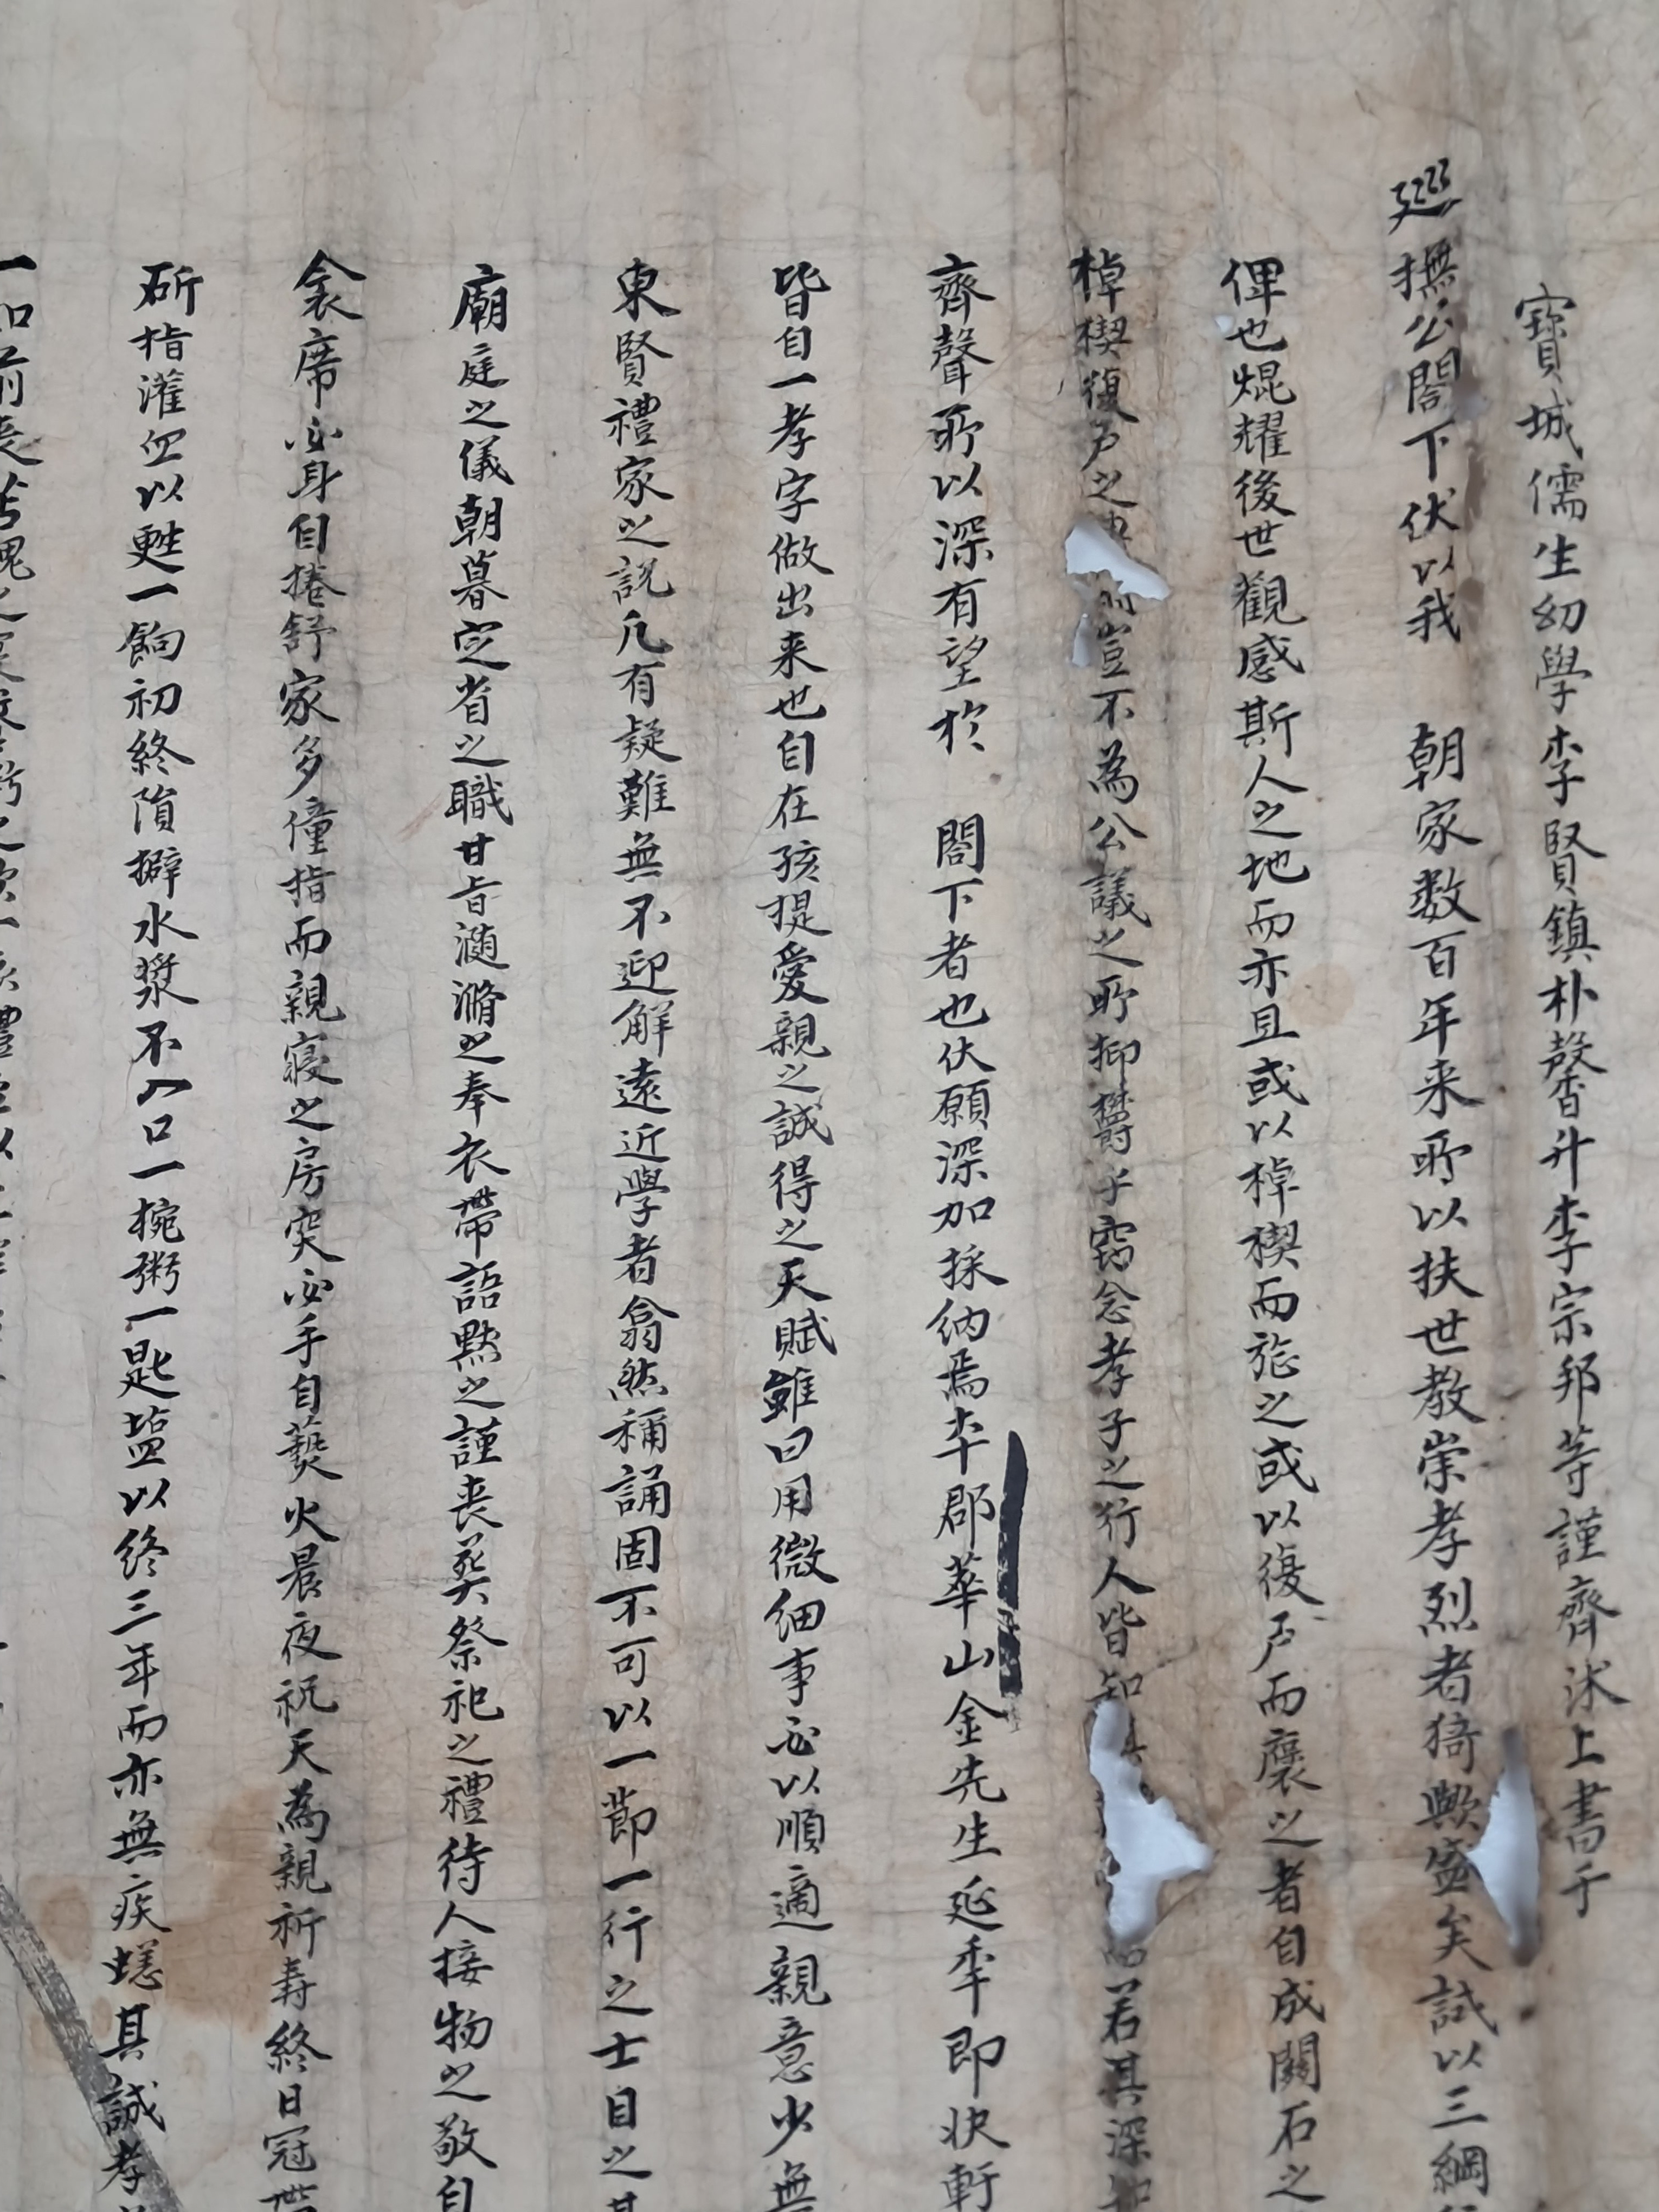 寶城儒生幼學李賢鎮朴馨升李宗邦等謹齋沐上書于
巡撫公閤下伏以我 朝家数百年来所以扶世教崇孝烈者猗歟盛矣試以三綱
俾也焜耀後世觀感斯人之地而亦且或以棹楔而旌之或以復戶而褒之者自成關石之
棹楔復戶之 豈不為公議之所抑欝乎竊念孝子之行人皆知 若其深
齊聲所以深有望於 閤下者也伏願深加採納焉本郡華山金先生延季即状軒
皆自一孝字做出来也自在孩提愛親之誠得之天賦雖日用微細事必以順適親意少無
東賢禮家之說凡有疑難無不迎解遠近學者翕然稱誦固不可以一節一行之士目之
廟庭之儀朝暮定省之職甘旨瀡滫之奉衣帶語黙之謹喪葬祭祀之禮待人接物之敬自
衾席必身自捲舒家多僮指而親寢之房突必手自爇火晨夜祝天為親祈壽終日冠
斫指灌血以甦一餉初終隕擗水漿不入口一椀粥一匙塩以终三年而亦無疾恙其誠孝